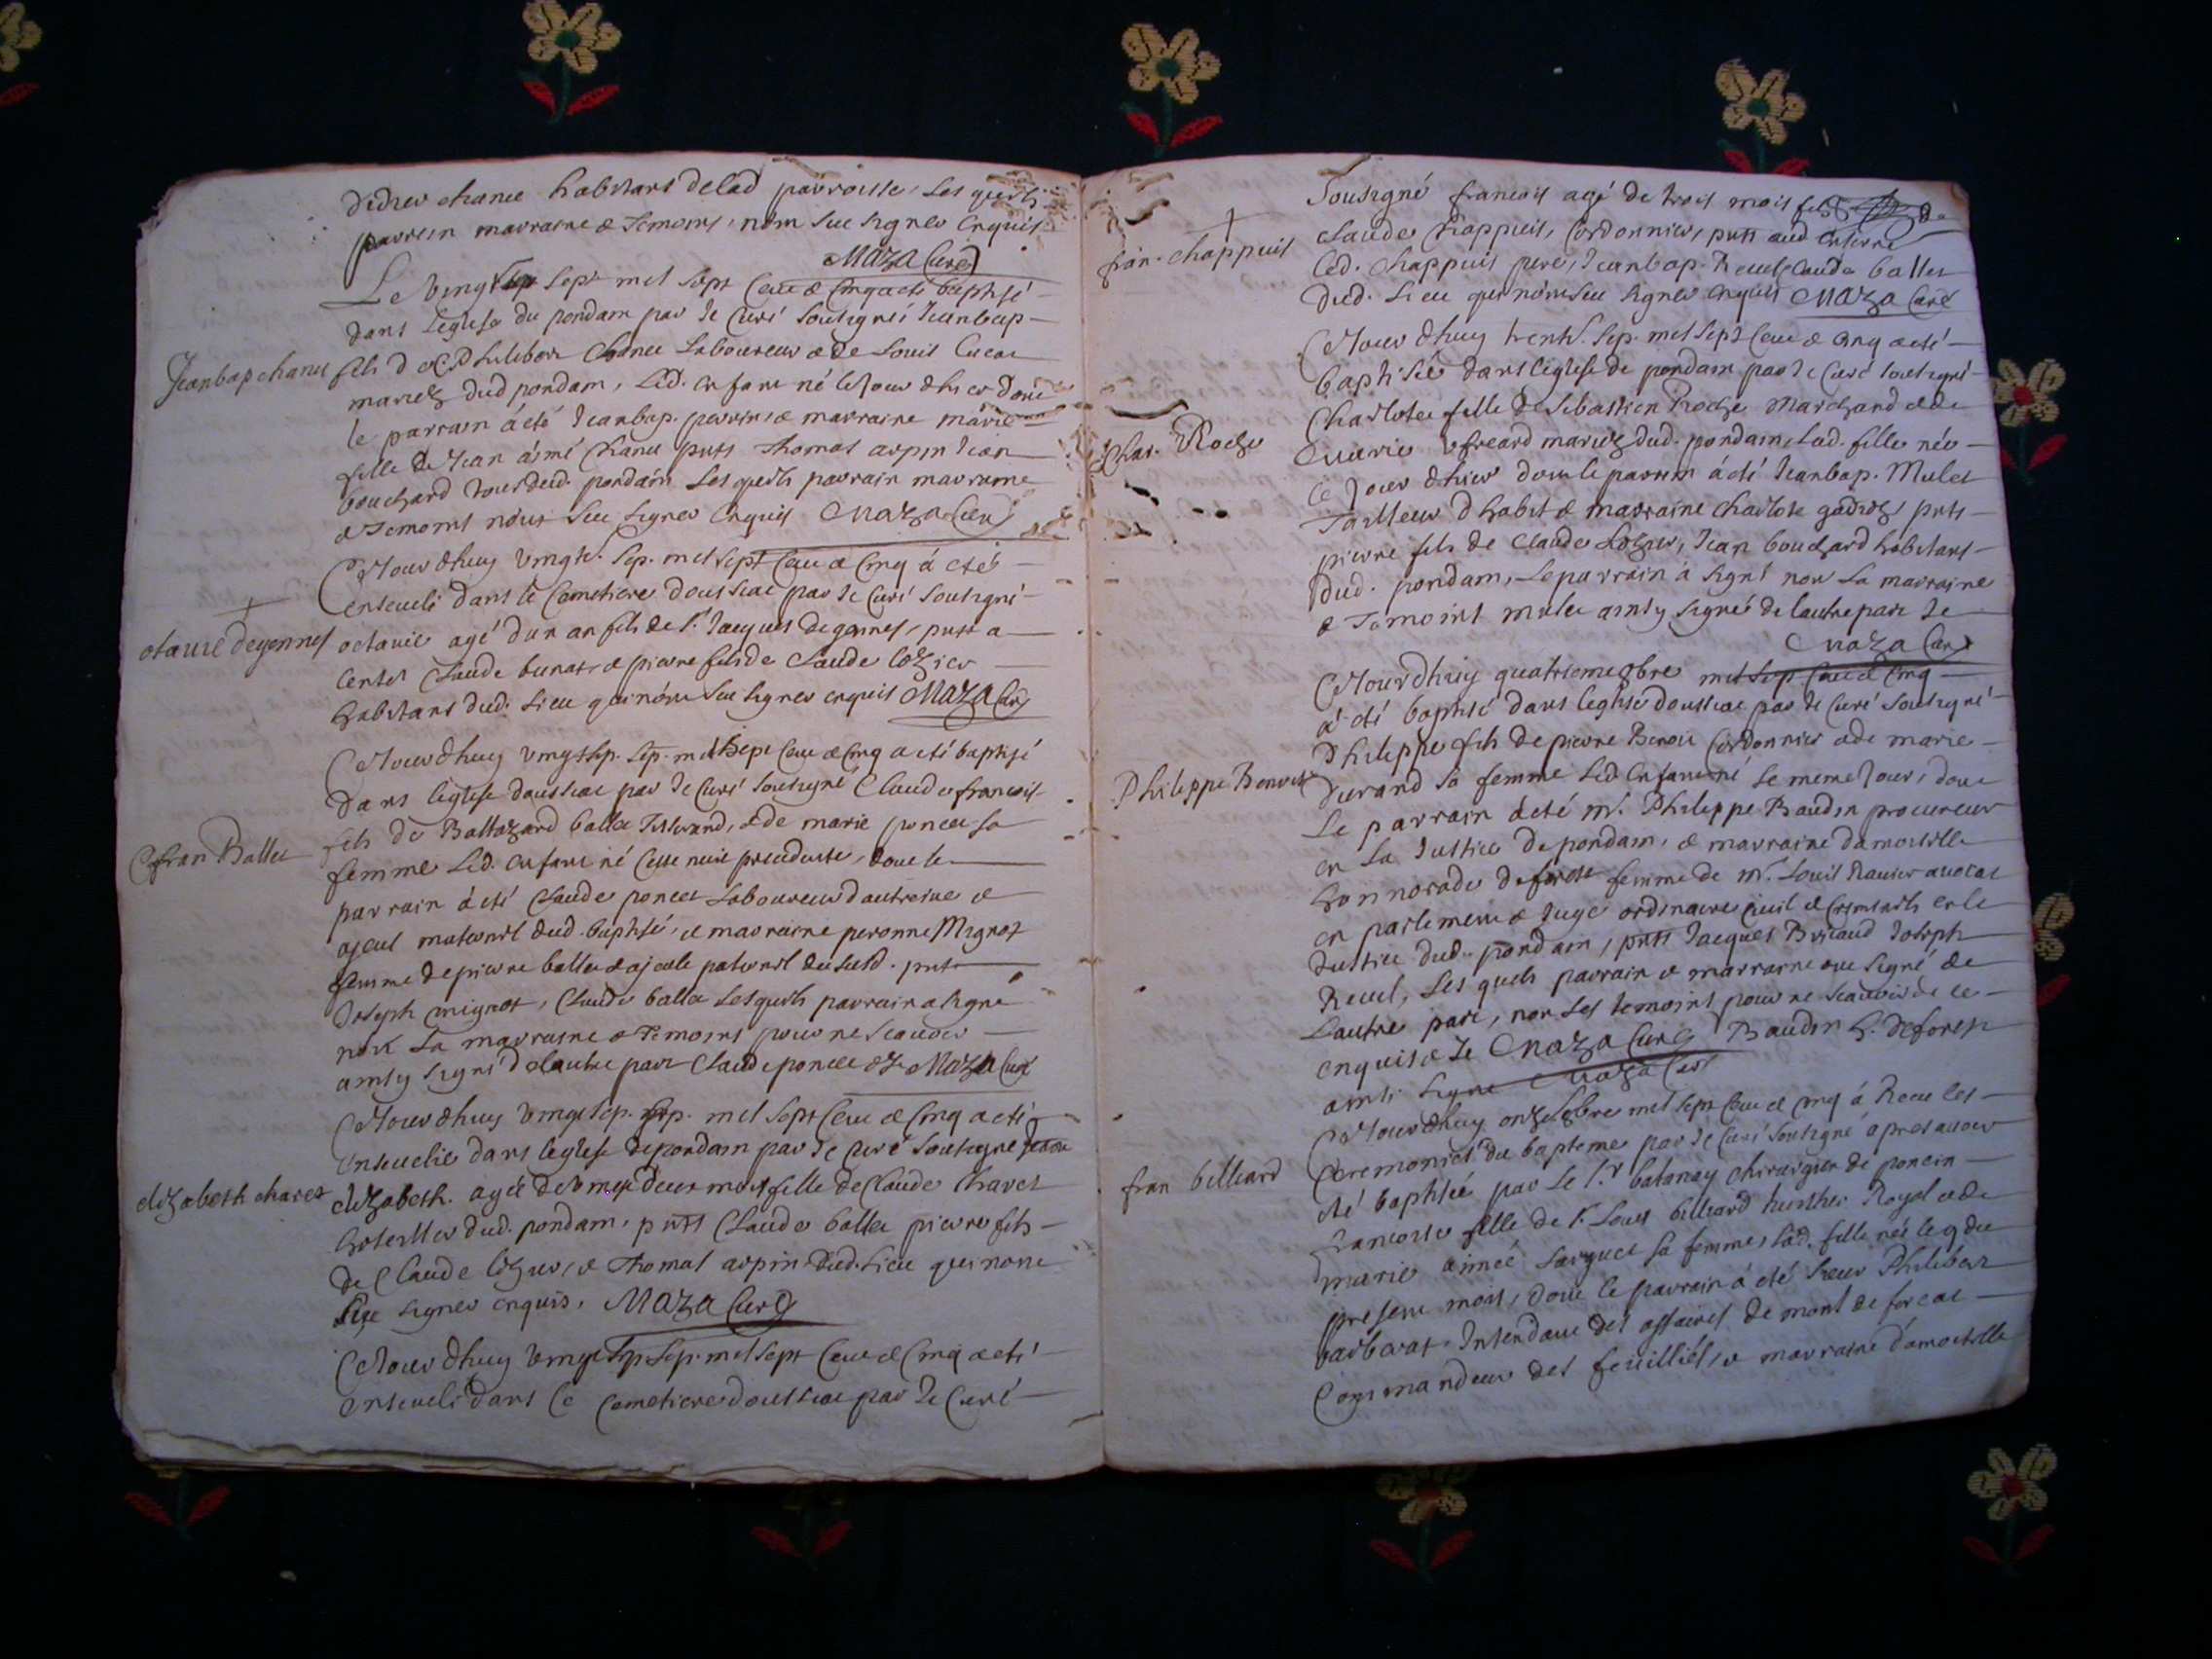 didier chanel habitans delad parroisse, les quels
parrein marraine & temoins, nòm sceu signer enquis.
MAZA Curé
Le vingt sept mil sept cent & cinq a été baptisé
dans l'église du pondain par Je Curé soussigné, Jeanbap-
Jeanbap chanel
fils d Philibert Chanel Laboureur & de Louise
mariez dud pondain, Led. enfant né le jour d'hier dont
le parrain à été Jeanbap. perrin, & marraine marie
fille de Jean aimé Chanel puts Thomas arpin Jean
bouchard tous dud. pondain Les quels parrain marraine
& temoins n'ont sceu signer enquis MAZA Curé
Cejourdhuy vingt Sep. mil sept cent & cinq à été
enseveli dans le Cemetiere doussiat par Je Curé soussigné
octavie deyonnes
octavie agé d'un an fils de Sr. Jacques degennes, puts a
Claude bunat, & pierre fils de Claude lozier
habitans dud. Lieu qui nònt sceu signer enquis MAZA Curé
Cejourdhuy vingtsep. sep. mil sept cent & cinq a été baptisé
dans l'église doussiat par Je Curé soussigné Claude françois
C fran Ballet
fils de Baltazard ballet Tisserand, & de marie poncet sa
femme Led. enfant né cette nuit precedente, dont le
parrain à été Claude poncet Laboureur dautreive &
ajeul maternel dud. baptisé, & marraine peronne Mignot
femme de pierre ballet & ajeule paternel dususd. puts
Joseph mignot, Claude ballet Lesquels parrain a signé
non La marraine & temoins pour ne scavoir
ainsy signé delautre part Claude poncet & Je MAZA Curé
Cejourdhuy vingt sep. sep. mil sept cent & cinq a été
ensevelie dans l'église depondain par Je Curé soussigné
elizabeth chavet
elizabeth. agée de vingt deux mois fille de Claude Chavet
hotellier dud. pondain, puts Claude ballet pierre fils
de Claude lozier, & Thomas arpin dud. Lieu qui nont
sceu signer enquis, MAZA Curé
Cejourdhuy vingt sep. sep. mil sept cent & cinq a été
enseveli dans le Cemetiere doussiat par Je Curé
soussigné francois agé de trois mois fils de
fran. chappuis
claude Chappuis, Cordonnier, puts aud enterre
Led. Chappuis pere, Jeanbap. Revel, Claude ballet
dud. Lieu qui nònt sceu signer enquis MAZA Curé
Cejourdhuy trente. sep. mil sept cent & cinq a été
baptisée dans l'église de pondain par Je Curé soussigné
Char. Roche
Charlotte fille de Sebastien Roche Marchand & de
mariez dud. pondain, Lad. fille née
Le jour d'hier dont le parrain à été Jeanbap. Mulet
Tailleur d'habit & marraine charlote puts
pierre fils de claude Lozier, Jean bouchard habitans
dud. pondain, Le parrain a signé non La marraine
& Temoins mulet ainsy signé de lautre part Je
MAZA Curé
Cejourdhuy quatrieme 8bre mil sep cent & cinq
à été baptisé dans leglise doussiat par Je Curé soussigné
Philippe Benoit
Philippe fils de pierre Benoit Cordonnier & de marie
Durand sa femme Led. enfant né le meme jour, dont
Le parrain à été mr. Philippe Baudin procureur
en La Justice de pondain, & marraine damoiselle
honnorade deforest femme de mr. Louis Ravier avocat
en parlement & Juge ordinaire civil & criminels en la
Justice dud. pondain, puts Jacques Briand Joseph
Revel, Les quels parrain & marraine ont signé de
Lautre part, non Les temoins pour ne scavoir de ce
enquis & Je MAZA Curé Baudin h. deforest
ainsi signé MAZA Curé
Cejourdhuy onze 8bre mil sept cent & cinq à Receu les
Ceremonies du bapteme par Je Curé soussigné apres avoir
fran billiard
été baptisée par Le Sr. batanay chirurgien de poncin
francoise fille de Sr. Louis billiard huissier Royal & de
marie aimée Larguet sa femme, Lad. fille née le 9 du
present mois, dont le parrain à été sieur Philibert
barberat Intendant des affaires de mont de forcat
Commandeur des feuilliés, & marraine damoiselle